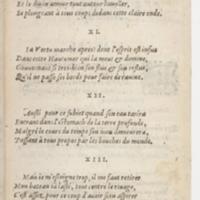 Et le divin amour tout autour
Se plongeant à tous coups dedans cette claire onde.
XI.
La Vertu marche apres dont l'esprit est infus
Dans cette Hauteur qui la meut & domine,
Gouvernant si tresbien son flus & son reflus,
Qu'il ne passe ses bords pour faire de ruine.
XII.
Aussi pour ce subiet quand son eau tarira
Entrant dans l'Estomach de la terre profonde,
Malgré le cours du temps son nom demeurera,
Passant à tous propos par les bouches du monde.
XIII.
Mais ie m'esloigne trop, il me faut retirer
Mon bateau ia lassé, tout contre le rivage,
C'est assez, pour ce coup d'avoir osé